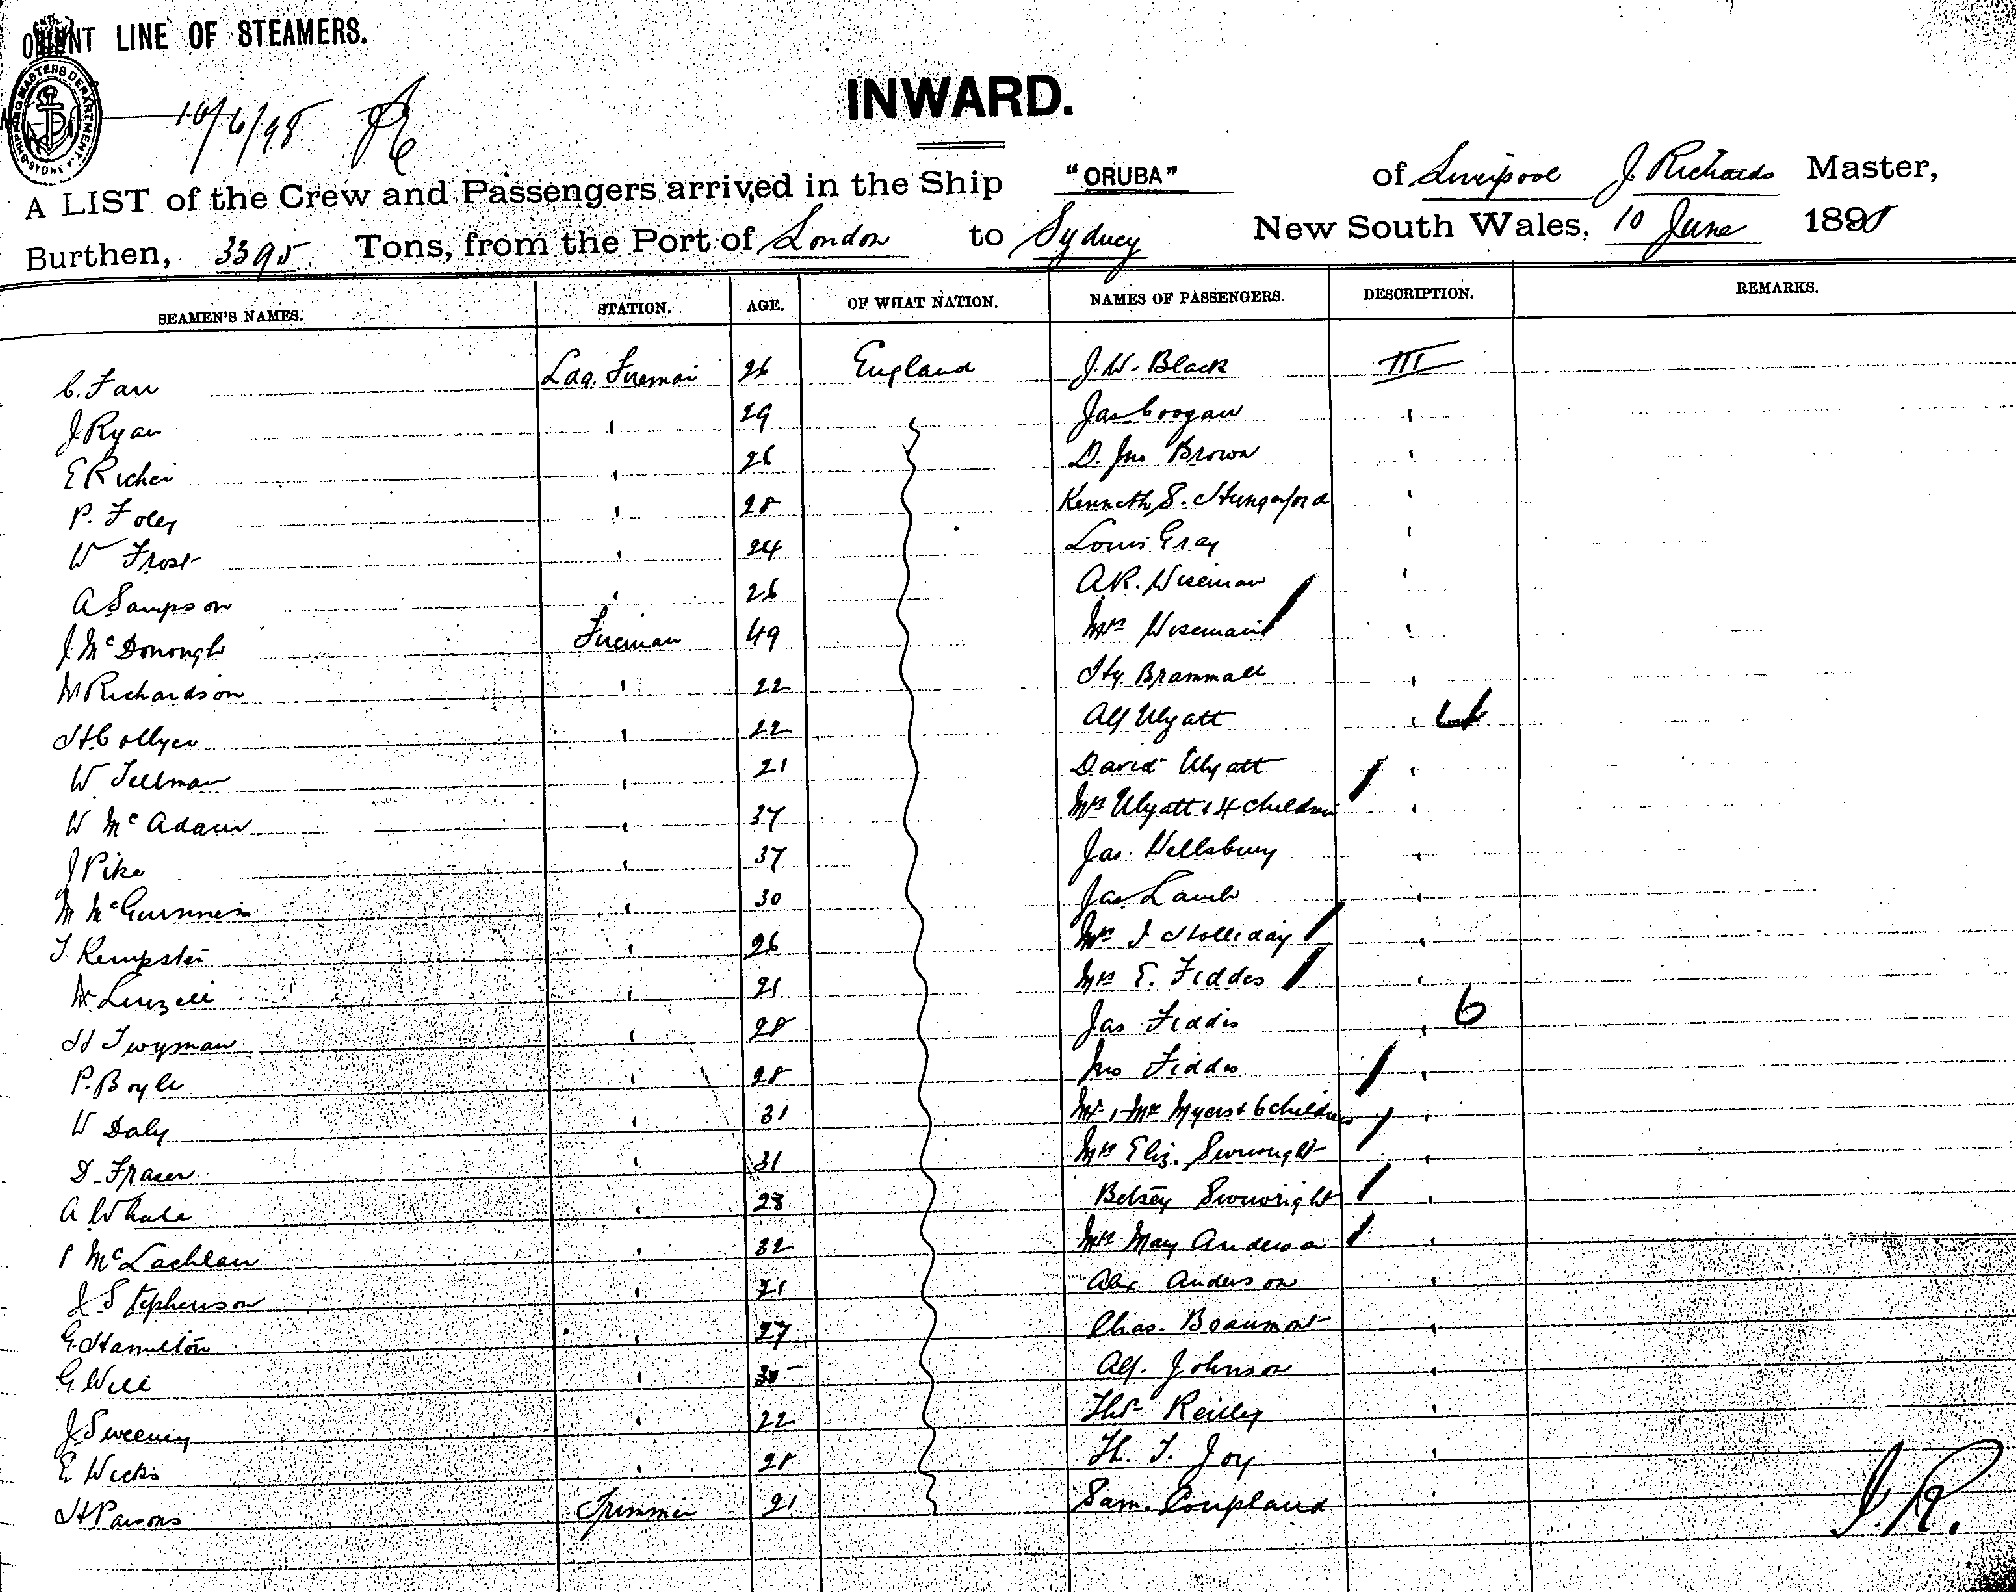 ORIENT LINE OF STEAMERS.
10/6/98
INWARD.
A LIST of the Crew and Passengers arrived in the Ship "ORUBA" of Liverpool J. Richards Master,
Burthen, 3395 Tons, from the Port of London to Sydney New South Wales, 10 June 1898
SEAMEN'S NAMES. STATION. AGE. OF WHAT NATION. NAMES OF PASSENGERS. DESCRIPTION. REMARKS.
C. Farr Ldg. Fireman 26 England J. W. Black III
J Ryan " 29 Jas Coogan "
E Richer " 26 D. Jno Brown "
P. Foley " 28 Kenneth S. Hungerford "
W Frost " 24 Louis Gray "
A Sampson " 26 A.R. Wiseman "
J McDonough Fireman 49 Mrs Wiseman "
W Richardson " 22 Hy Brammall "
H Collyer " 22 Alf Wyatt "
W Tillman " 21 David Wyatt "
W McAdam " 37 Mrs Wyatt & 4 children "
J Pike " 37 Jas. Wellsbury "
M McGuinness " 30 Jas Lamb "
T Kempster " 26 Mrs J Holliday "
21 Mrs E. Fiddes "
H Twyman " 28 Jas Fiddes " 6
P. Boyle " 28 Jno Fiddes "
W Daly " 31 Mr & Mrs Myers & 6 children "
D Fraser " 31 Mrs Eliz.
A Whale " 28 Betsey
McLachlan " 32 Mrs May Anderson "
J Stephenson " 21 Alex Anderson "
G. Hamilton " 27 Chas. Beaumont "
G Will " 30 Alf. Johnson "
J Sweeney " 22 Thos Reilly "
E Wicks " 28 H. T. Joy "
H Parsons Trimmer 21 Sam. Coupland "
J.R.